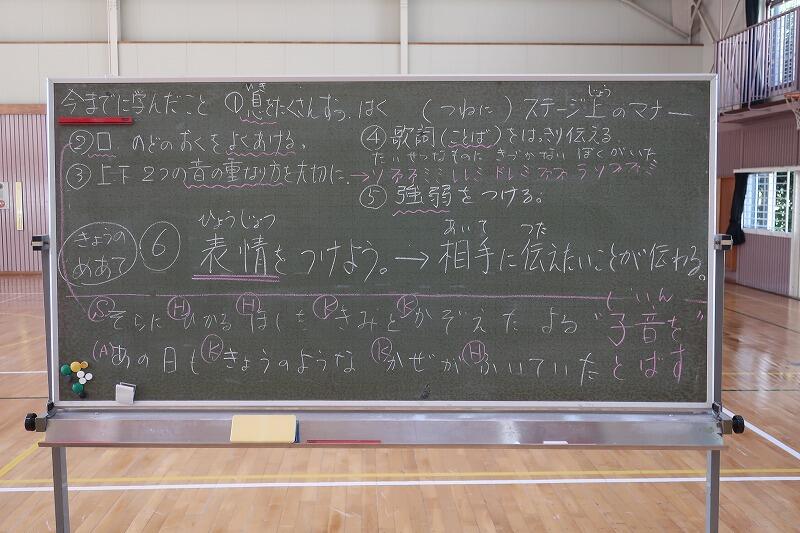 今までに学んだこと ①息をたくさんすって、はく (つねに) ステージ上のマナー
いき
じょう
②口 のどのおくをよくあける。 ④歌詞(ことば)をはっきり伝える。
たいせつなものに きづかない ぼくがいた
③上下 2つの音の重なり方を大切に。→ソファファミミ レレミ ドレミファファ ラソファファミ
⑤強弱をつける。
ひょうじょう あいて つた
きょうの めあて ⑥表情をつけよう。→相手に伝えたいことが伝わる。
Ⓢそらに Ⓗひかる Ⓗほしを Ⓚきみと Ⓚかぞえた よる
(A)あの日も Ⓚきょうのような Ⓚかぜが Ⓗふいていた
しいん
"子音を とばす"